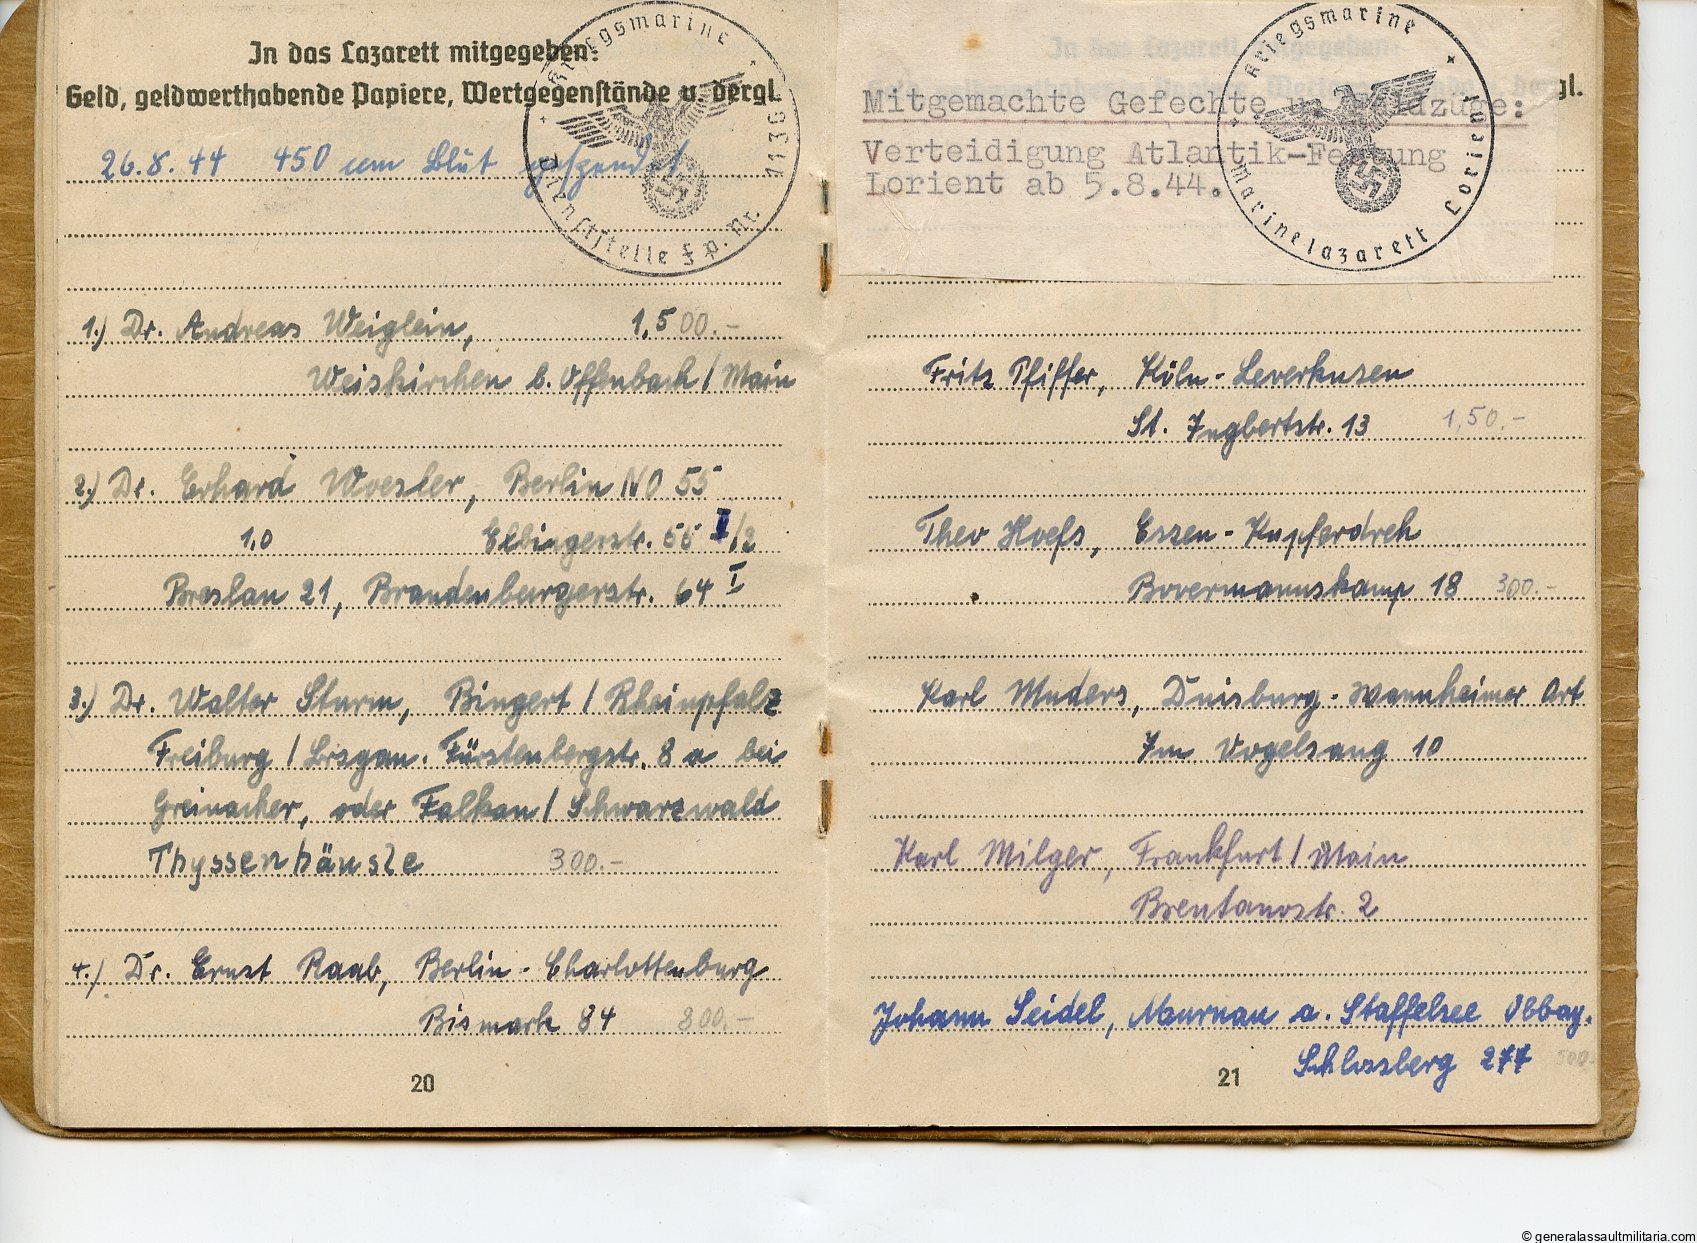 In das Lazarett mitgegeben:
Geld, geldwerthabende Papiere, Wertgegenstände u. dergl.
Kriegsmarine
Dienststelle F. p. Nr.
26.8.44 450 ccm Blut gespendet
1.) Dr. Andreas Weiglein, 1,500.-
Weiskirchen b. Offenbach / Main
2.) Dr. Erhard Woesler, Berlin NO 55
1,0 Elbingerstr. 55 I/2
Breslau 21, Brandenburgerstr. 64 I
3.) Dr. Walter Sturm, Bingert / Rheinpfalz
Freiburg / Brsgau. Fürstenbergstr. 8 a bei
Greinacher, oder Falkau / Schwarzwald
Thyssenhäusle 300.-
4.) Dr. Ernst Raab, Berlin-Charlottenburg
Bismark 84 800.-
20
Mitgemachte Gefechte
Verteidigung Atlantik-Festung
Lorient ab 5.8.44.
Kriegsmarine
Marinelazarett Lorient
gl.
Fritz Pfiffer, Köln-Leverkusen
St. Ingbertstr. 13 1,50.-
Theo Hoefs, Essen-Kupferdreh
Bovermannskamp 18 300.-
Karl Muders, Duisburg-Wannheimer Ort
Im Vogelsang 10
Karl Milger, Frankfurt / Main
Brentanostr. 2
Johann Seidel, Murnau a. Staffelsee Obbay.
Schlossberg 277
21
© generalassaultmilitaria.com